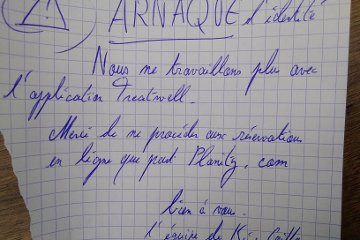 ARNAQUE d'identité
Nous ne travaillons plus avec
l'application Treatwell.
Merci de ne procéder aux réservations
en ligne que par Planity.com
bien à vous.
l'équipe de